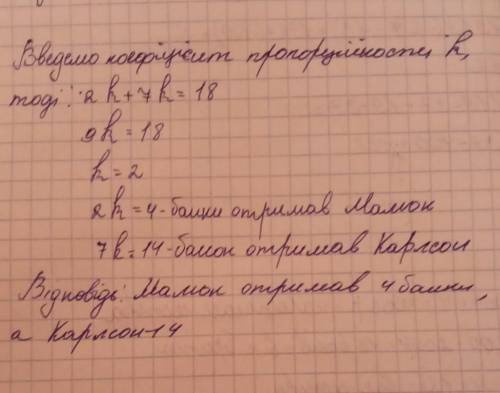 Введемо коефіцієнт пропорційності k,
тоді: 2k+7k=18
9k=18
k=2
2k=4-банки отримав Малюк
7k=14-банок отримав Карлсон
Відповідь: Малюк отримав 4 банки,
а Карлсон-14